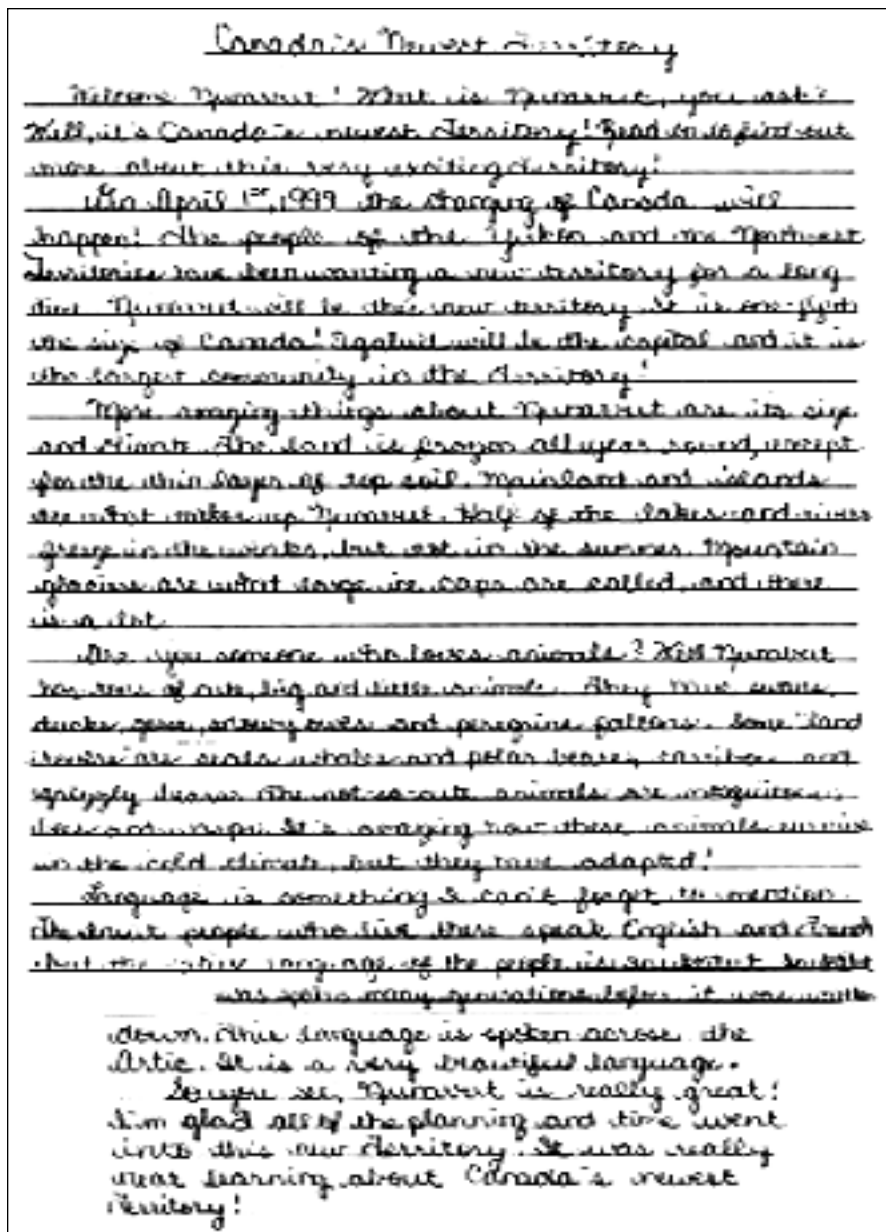 Canada's Newest Territory
Welcome Nunavut! What is Nunavut, you ask?
Well, it's Canada's newest Territory! Read on to find out
more about this very exciting territory!
On April 1st, 1999 the changing of Canada will
happen! The people of the Yukon and the Northwest
Territories have been wanting a new territory for a long
time. Nunavut will be the new territory. It is one-fifth
the size of Canada! Iqaluit will be the capital and it is
the largest community in the territory!
More amazing things about Nunavut are its size
and climate. The land is frozen all year round, except
for the thin layer of top soil. Mainland and islands
are what makes up Nunavut. Half of the lakes and rivers
freeze in the winter, but not in the summer. Mountain
glaciers are what large ice caps are called, and there
is a lot.
Are you someone who loves animals? Well Nunavut
has tons of cute, big and little animals. They have swans,
ducks, geese, snowy owls and peregrine falcons. Some land
are seals, whales and polar bears, carribou and
grizzly bears. The not-so-cute animals are mosquitoes,
It's amazing how these animals survive
in the cold climate, but they have adapted!
Language is something I can't forget to mention.
The Inuit people who live there speak English and French
but the native language of the people is Inuktitut. Inuktitut
was spoken many generations before it was written
down. This language is spoken across the
Artic. It is a very beautiful language.
So you see, Nunavut is really great!
I'm glad all of the planning and time went
into this new territory. It was really
neat learning about Canada's newest
Territory!